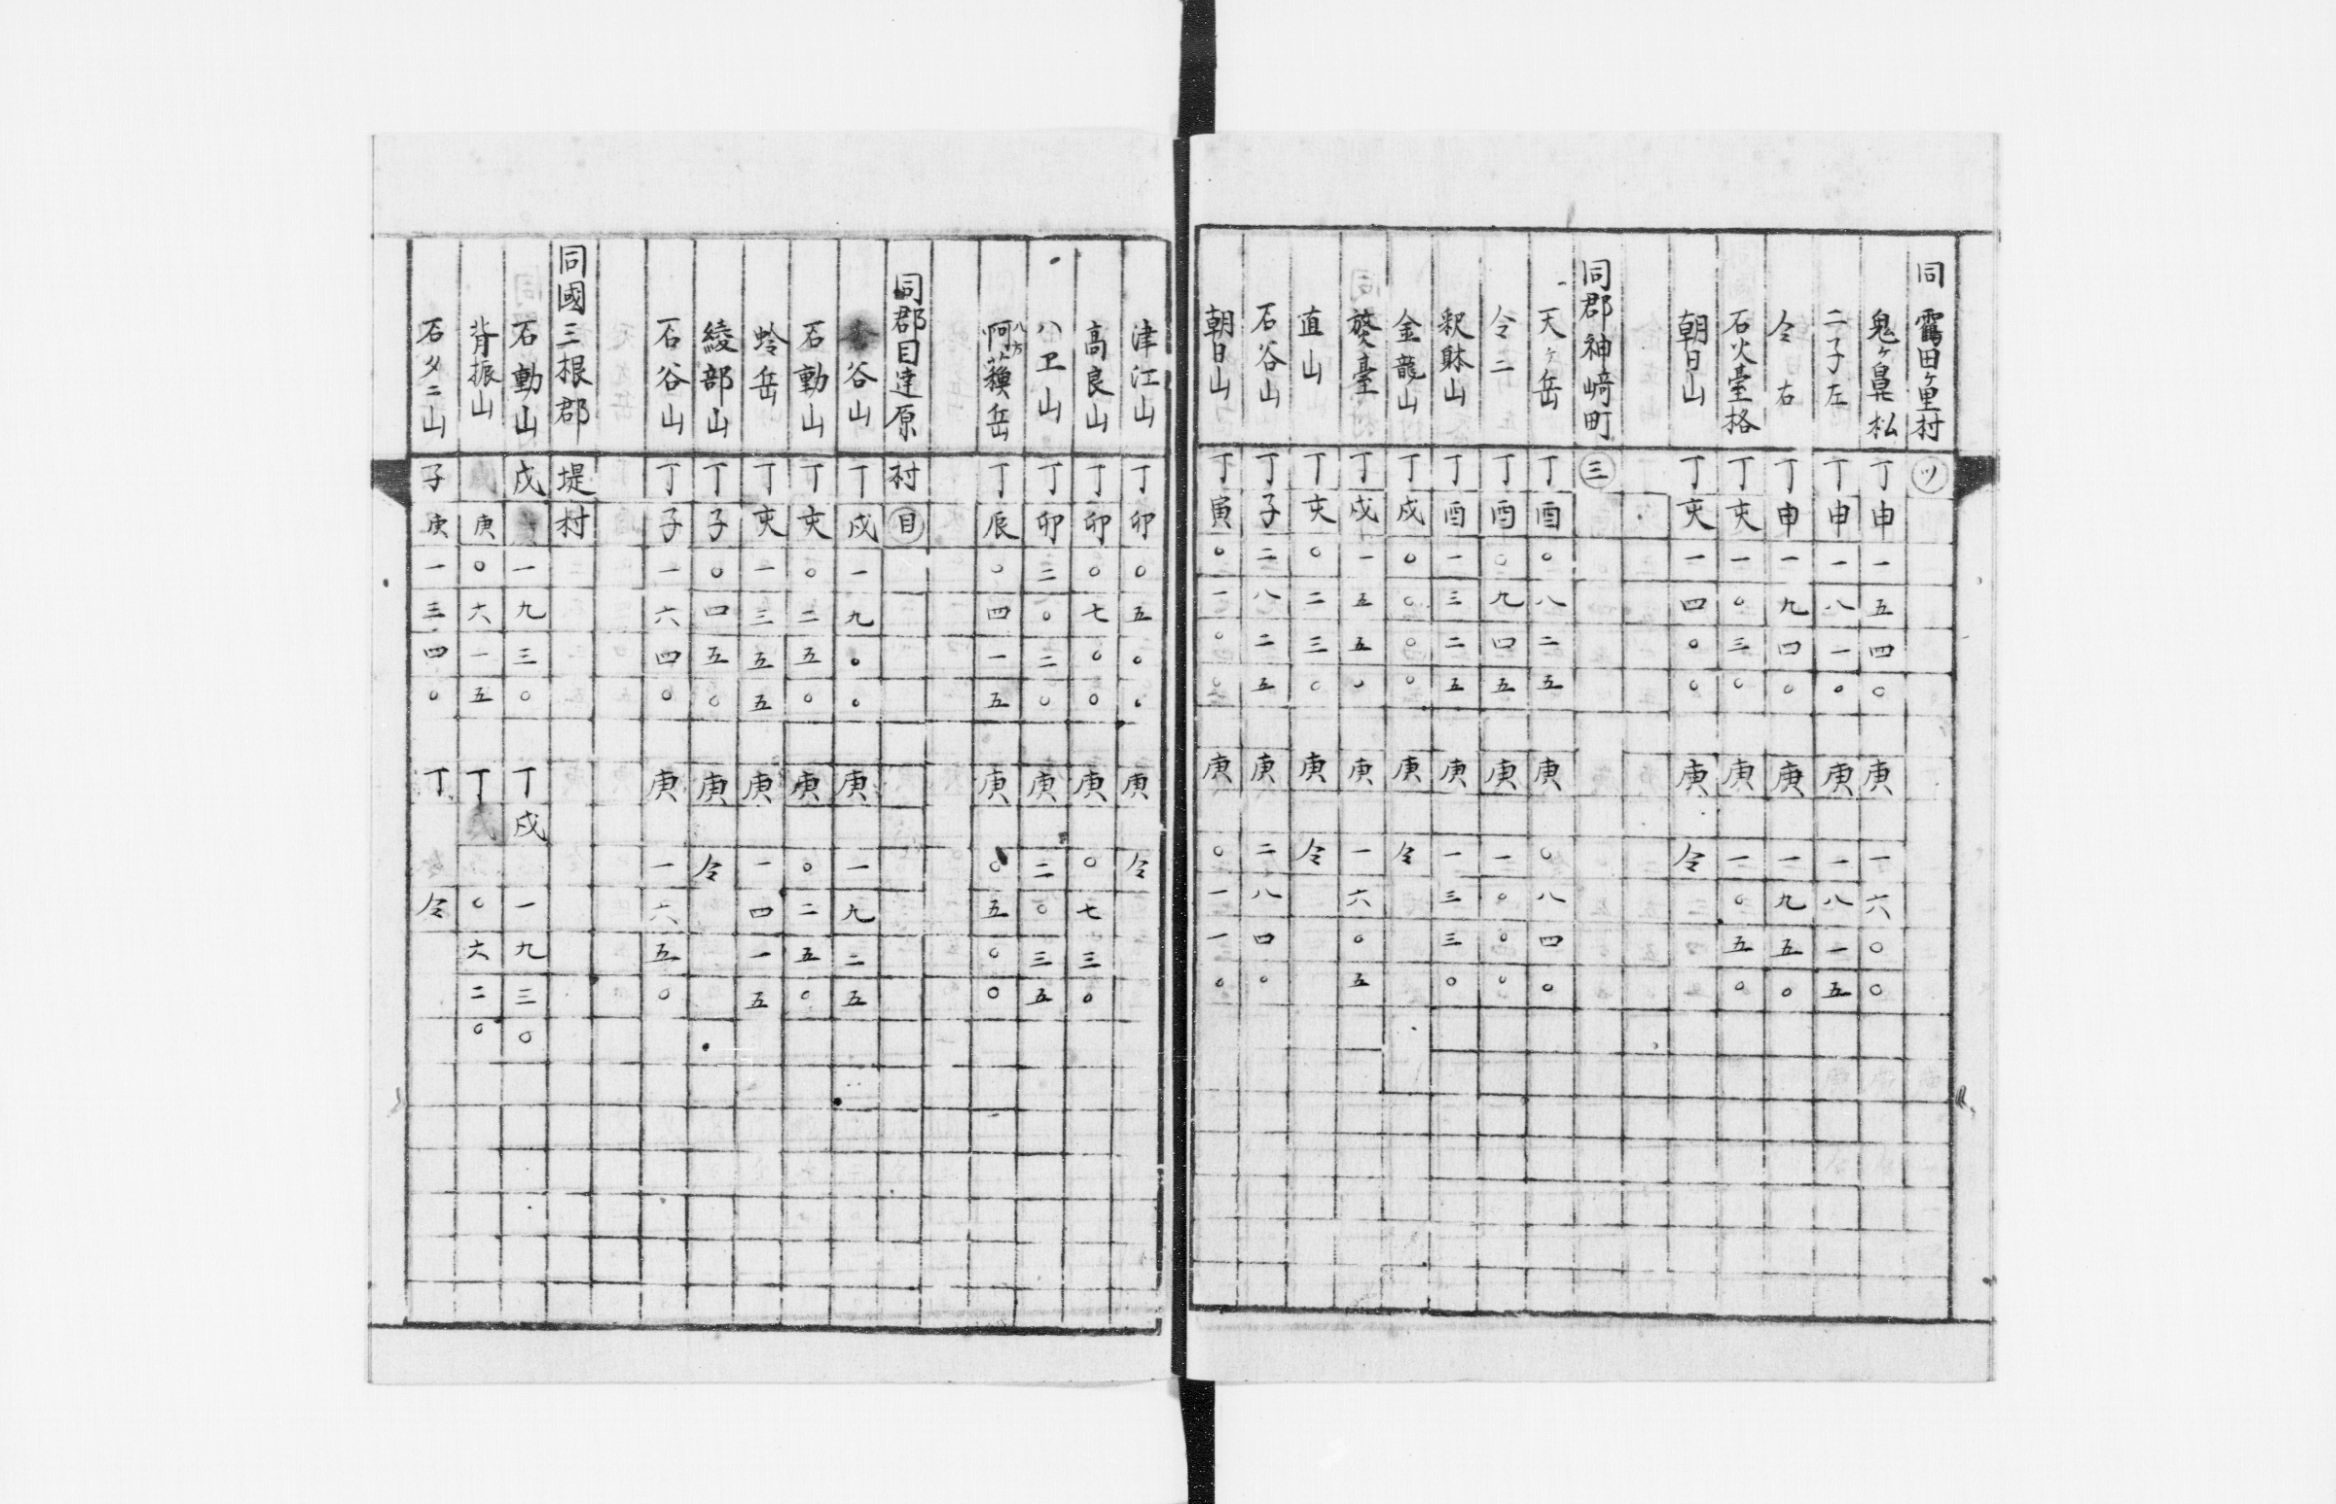 同 鸖田ヶ里村 ㋡
鬼ヶ鼻松 丁申 一五四〇 庚 一六〇〇
二子左 丁申 一八一〇 庚 一八一五
仝 右 丁申 一九四〇 庚 一九五〇
石火臺格 丁亥 一〇三〇 庚 一〇五〇
朝日山 丁亥 一四〇〇 庚 仝
同郡神﨑町 ㊂
天ヶ岳 丁酉 〇八二五 庚 〇八四〇
仝二 丁酉 〇九四五 庚 一〇〇〇
釈躰山 丁酉 一三二五 庚 一三三〇
金龍山 丁戌 〇〇〇〇 庚 仝
臺 丁戌 一五五〇 庚 一六〇五
直山 丁亥 〇二三〇 庚 仝
石谷山 丁子 二八二五 庚 二八四〇
朝日山 丁寅 〇一〇〇 庚 〇一一〇
津江山 丁卯 〇五〇〇 庚 仝
高良山 丁卯 〇七〇〇 庚 〇七三〇
八卫山 丁卯 二〇二〇 庚 二〇三五
八方
岳 丁辰 〇四一五 庚 〇五〇〇
同郡目達原村 目
谷山 丁戌 一九〇〇 庚 一九二五
石動山 丁亥 〇二五〇 庚 〇二五〇
蛉岳 丁亥 一三五五 庚 一四一五
綾部山 丁子 〇四五〇 庚 仝
石谷山 丁子 一六四〇 庚 一六五〇
同國三根郡堤村
石動山 戌 一九三〇 丁戌 一九三〇
背振山 庚 〇六一五 丁 〇六二〇
石タニ山 子庚 一三四〇 丁 仝